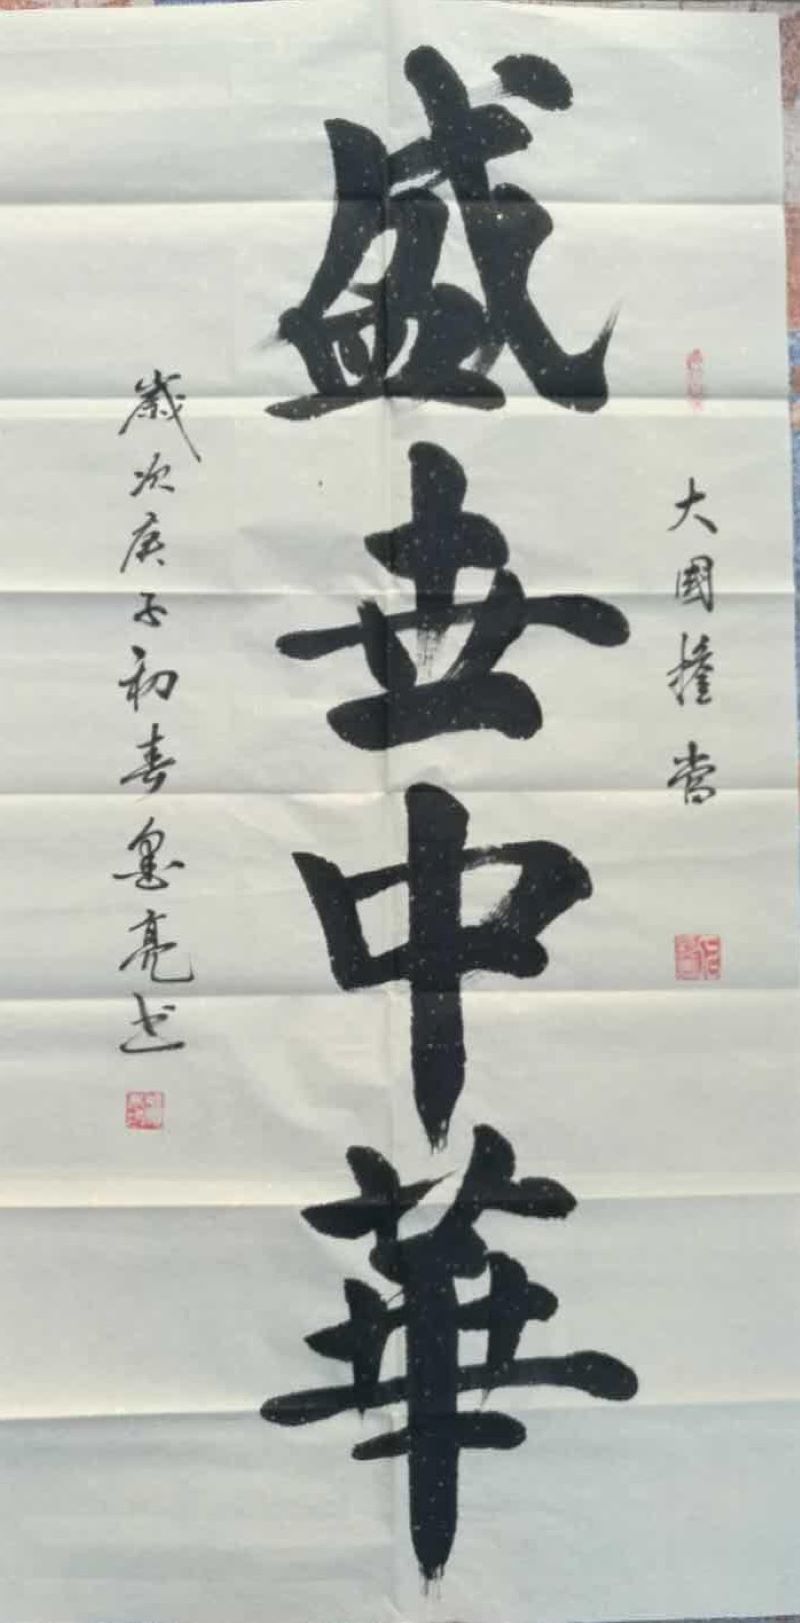 大國擔當
盛世中華
歲次庚子初春墨亮书